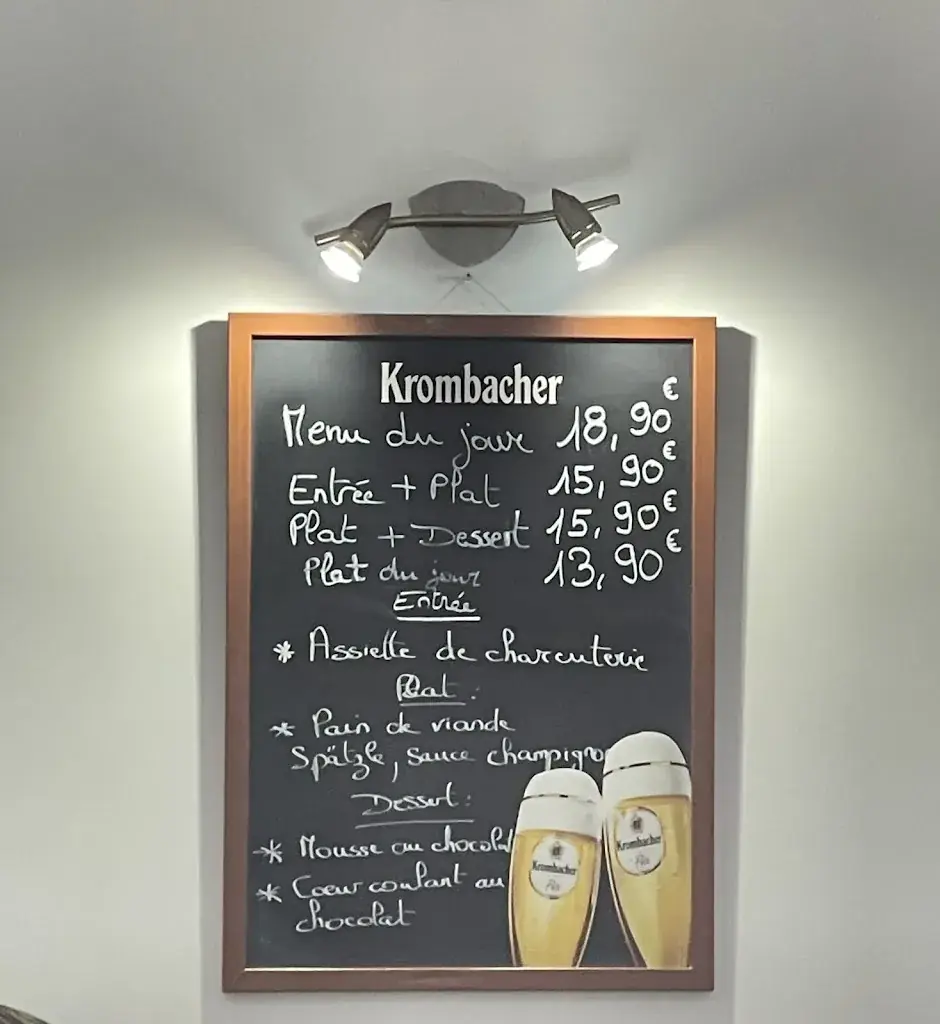 Krombacher
Menu du jour 18,90€
Entrée + Plat 15,90€
Plat + Dessert 15,90€
Plat du jour 13,90€
Entrée
* Assiette de charcuterie
Plat :
* Pain de viande
Spätzle, sauce champigno
Dessert :
* Mousse au chocolat
* Cœur coulant au
chocolat
Krombacher
Pils
Krombacher
Pils